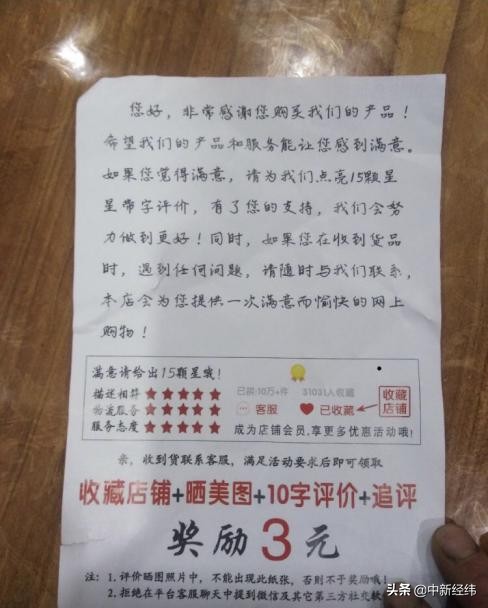 您好，非常感谢您购买我们的产品！
希望我们的产品和服务能让您感到满意。
如果您觉得满意，请为我们点亮15颗星
星带字评价，有了您的支持，我们会努
力做到更好！同时，如果您在收到货品
时，遇到任何问题，请随时与我们联系，
本店会为您提供一次满意而愉快的网上
购物！
满意请给出15颗星哦！
描述相符 ★★★★★ 已拼:10万+件 · 31031人收藏
物流服务 ★★★★★ 客服 已收藏
服务态度 ★★★★★ 成为店铺会员,享更多优惠活动哦!
收藏
店铺
亲，收到货联系客服，满足活动要求后即可领取
收藏店铺+晒美图+10字评价+追评
奖励3元
注：1. 评价晒图照片中，不能出现此纸张，否则不予奖励哦！
2. 拒绝在平台客服聊天中提到微信及其它第三方社交软
头条 @中新经纬